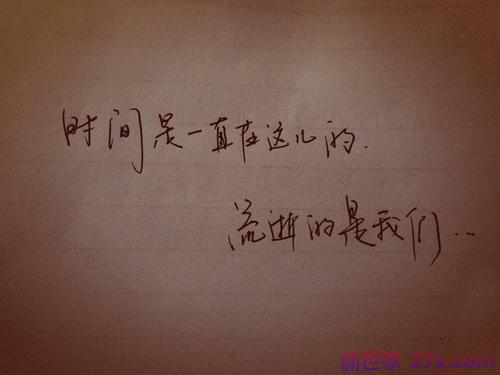 时间是一直在这儿的.
流逝的是我们...
新世家 27x.com